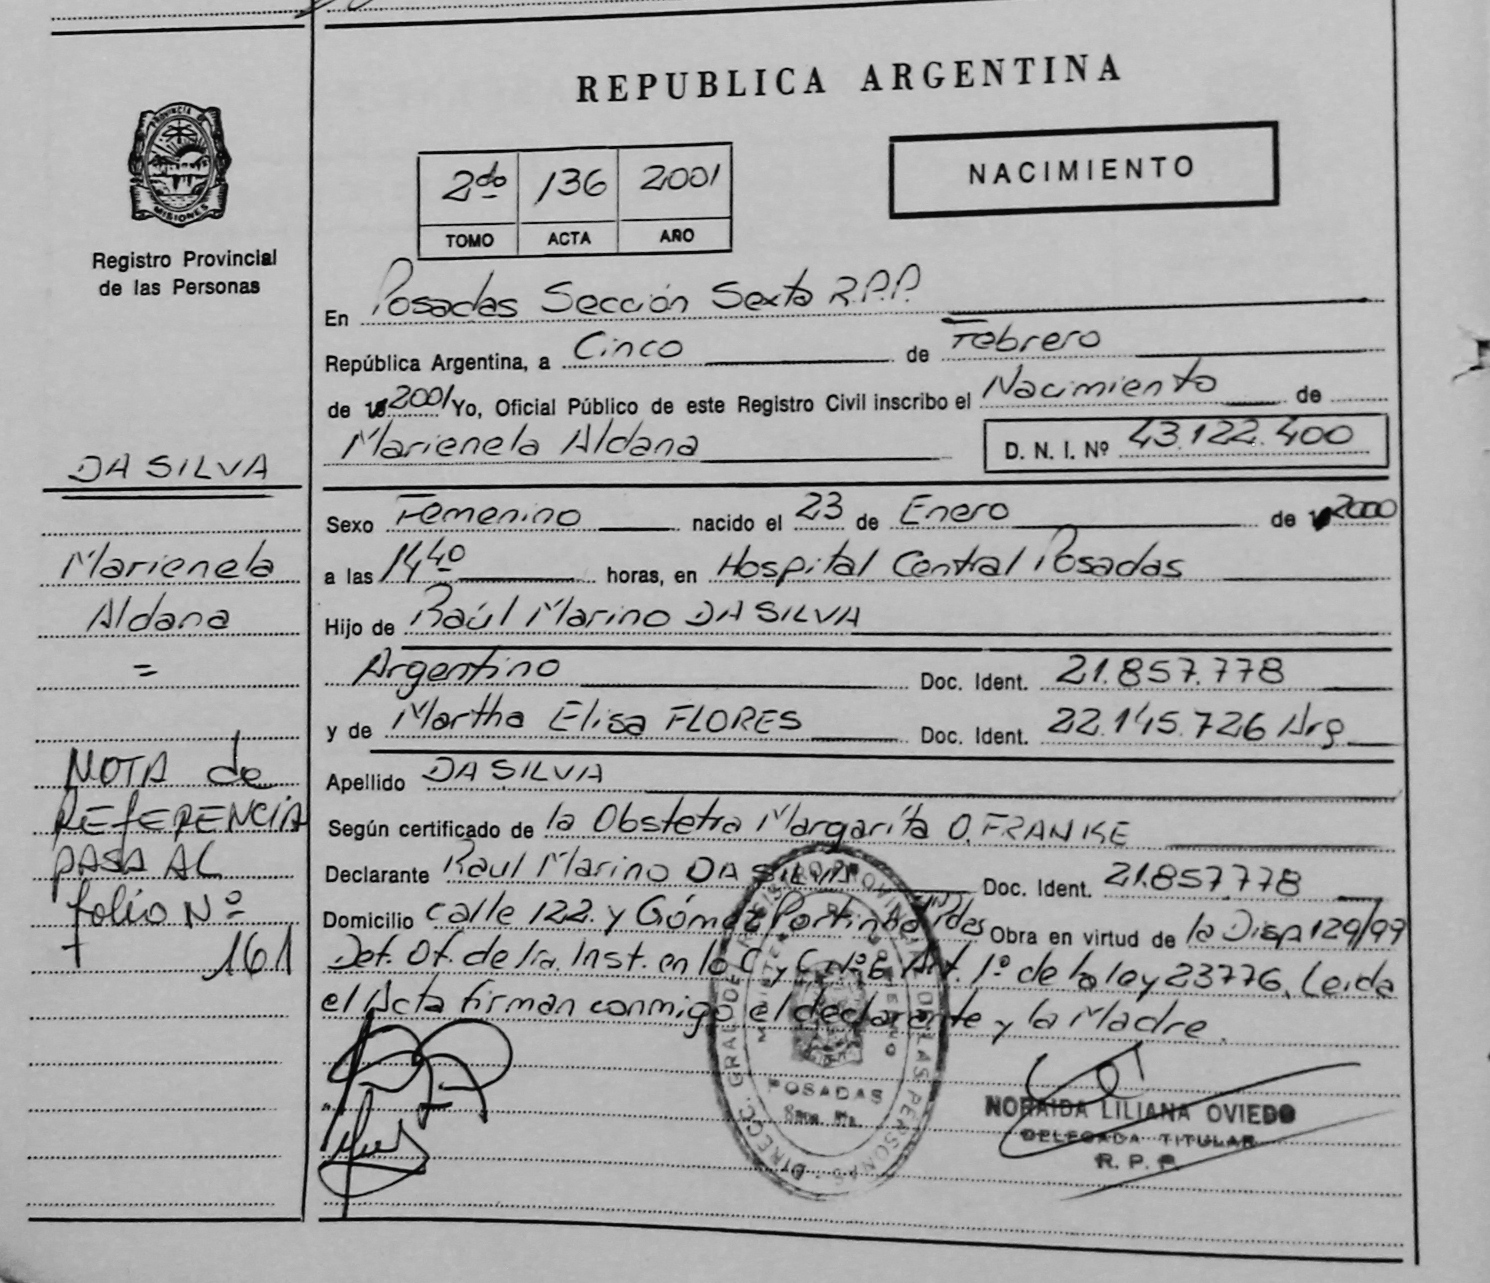 REPUBLICA ARGENTINA
PROVINCIA DE
MISIONES
Registro Provincial
de las Personas
2do 136 2001
TOMO ACTA AÑO
NACIMIENTO
En Posadas Sección Sexta R.P.P.
República Argentina, a Cinco de Febrero
de 2001 Yo, Oficial Público de este Registro Civil inscribo el Nacimiento de
Marienela Aldana D. N. I. Nº 43.122.400
DA SILVA
Sexo Femenino nacido el 23 de Enero de 2000
Marienela
a las 14 40 horas, en Hospital Central Posadas
Aldana
Hijo de Raúl Marino DA SILVA
=
Argentino Doc. Ident. 21.857.778
y de Martha Elisa FLORES Doc. Ident. 22.145.726 Arg
NOTA de
REFERENCIA
PASA AL
folio Nº
161
Apellido DA SILVA
Según certificado de la Obstetra Margarita O. FRANKE
Declarante Raul Marino DA SILVA Doc. Ident. 21.857.778
Domicilio calle 122 y Gómez Portinho Pdas Obra en virtud de la Disp 129/99
Def. Of. de 1ra. Inst. en lo C y C Nº 6 Art. 1º de la ley 23776. Leida
el Acta firman conmigo el declarante y la Madre.
DIRECC. GRAL. DE REGISTRO PROVINCIAL DE LAS PERSONAS
MINISTERIO DE GOBIERNO
POSADAS
NORAIDA LILIANA OVIEDO
DELEGADA TITULAR
R. P. P.